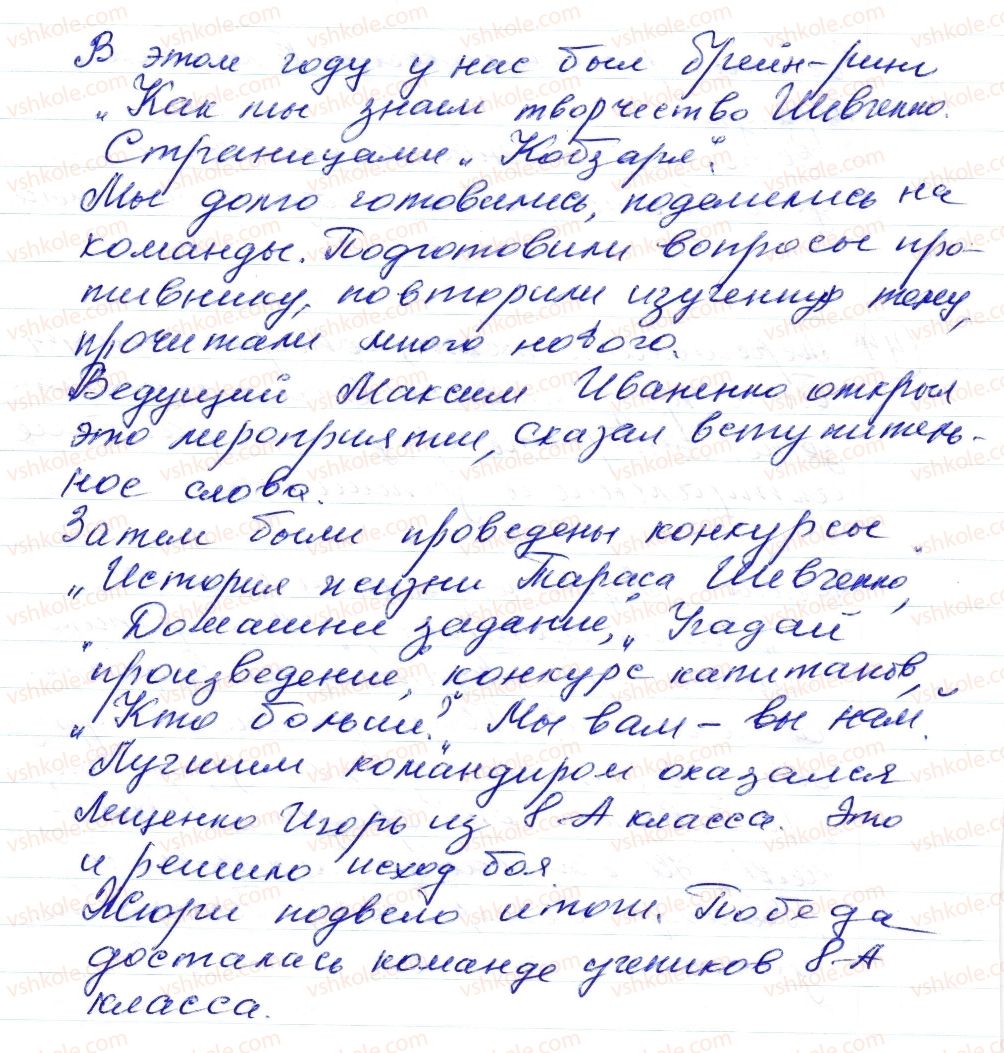 В этом году у нас был брейн-ринг
„Как ты знаешь творчество Шевченко.
Страницами „Кобзаря".
Мы долго готовились, поделились на
команды. Подготовили вопросы про-
тивнику, повторили изученную тему,
прочитали много нового.
Ведущий Максим Иваненко открыл
это мероприятие, сказал вступитель-
ное слова.
Затем были проведены конкурсы
„История жизни Тараса Шевченко",
„Домашнее задание", „Угадай
произведение", конкурс капитанов,
„Кто больше?" „Мы вам – вы нам".
Лучшим командиром оказался
Лещенко Игорь из 8-А класса. Это
и решило исход боя.
Жюри подвело итоги. Победа
досталась команде учеников 8-А
класса.